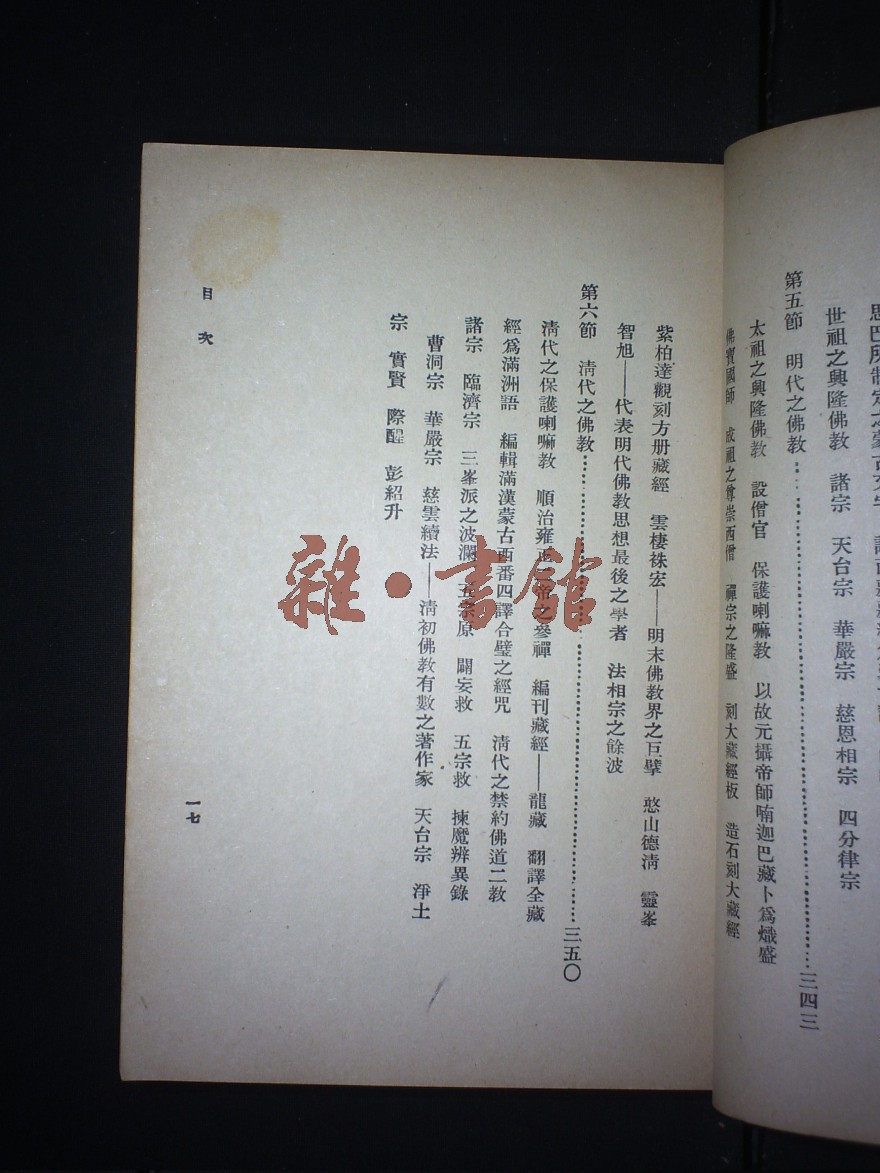 世祖之興隆佛教　諸宗　天台宗　華嚴宗　慈恩相宗　四分律宗
第五節　明代之佛教……三四三
太祖之興隆佛教　設僧官　保護喇嘛教　以故元攝帝師喃迦巴藏卜爲熾盛
佛寶國師　成祖之尊崇西僧　禪宗之隆盛　刻大藏經板　造石刻大藏經
紫柏達觀刻方册藏經　雲棲袾宏——明末佛教界之巨擘　憨山德淸　靈峯
智旭——代表明代佛教思想最後之學者　法相宗之餘波
第六節　淸代之佛教……三五〇
淸代之保護喇嘛教　順治雍正二帝之參禪　編刊藏經——龍藏　翻譯全藏
經爲滿洲語　編輯滿漢蒙古西番四譯合璧之經咒　淸代之禁約佛道二教
諸宗　臨濟宗　三峯派之波瀾　五宗原　闢妄救　五宗救　揀魔辨異錄
曹洞宗　華嚴宗　慈雲續法——淸初佛教有數之著作家　天台宗　淨土
宗　實賢　際醒　彭紹升
目次
一七
雜·書館